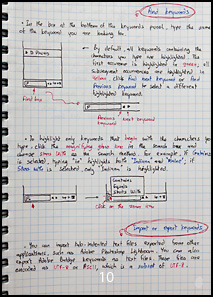 Find keywords
• In the box at the bottom of the keywords panel, type the name
of the keyword you are looking for.
• By default, all keywords containing the
characters you type are highlighted. The
first occurrence is highlighted in green, all
subsequent occurrences are highlighted in
Yellow. Click Find next keyword or Find
Previous keyword to select a different
highlighted keyword.
Find box
Previous keyword
Next keyword
• To highlight only keywords that begin with the characters you
type, click the magnifying glass icon in the search box and
choose Starts With as the search method. For example, if Contains
is selected, typing "in" highlights both "Indiana" and "Maine"; if
Starts With is selected, only "Indiana" is highlighted.
Contains
Equals
Starts With
Click on the
Import or export keywords
• You can import tab-indented text files exported from other
applications, such as Adobe Photoshop Lightroom. You can also
export Adobe Bridge keywords as text files. These files are
encoded as UTF-8 or ASCII, which is a subset of UTF-8.
10